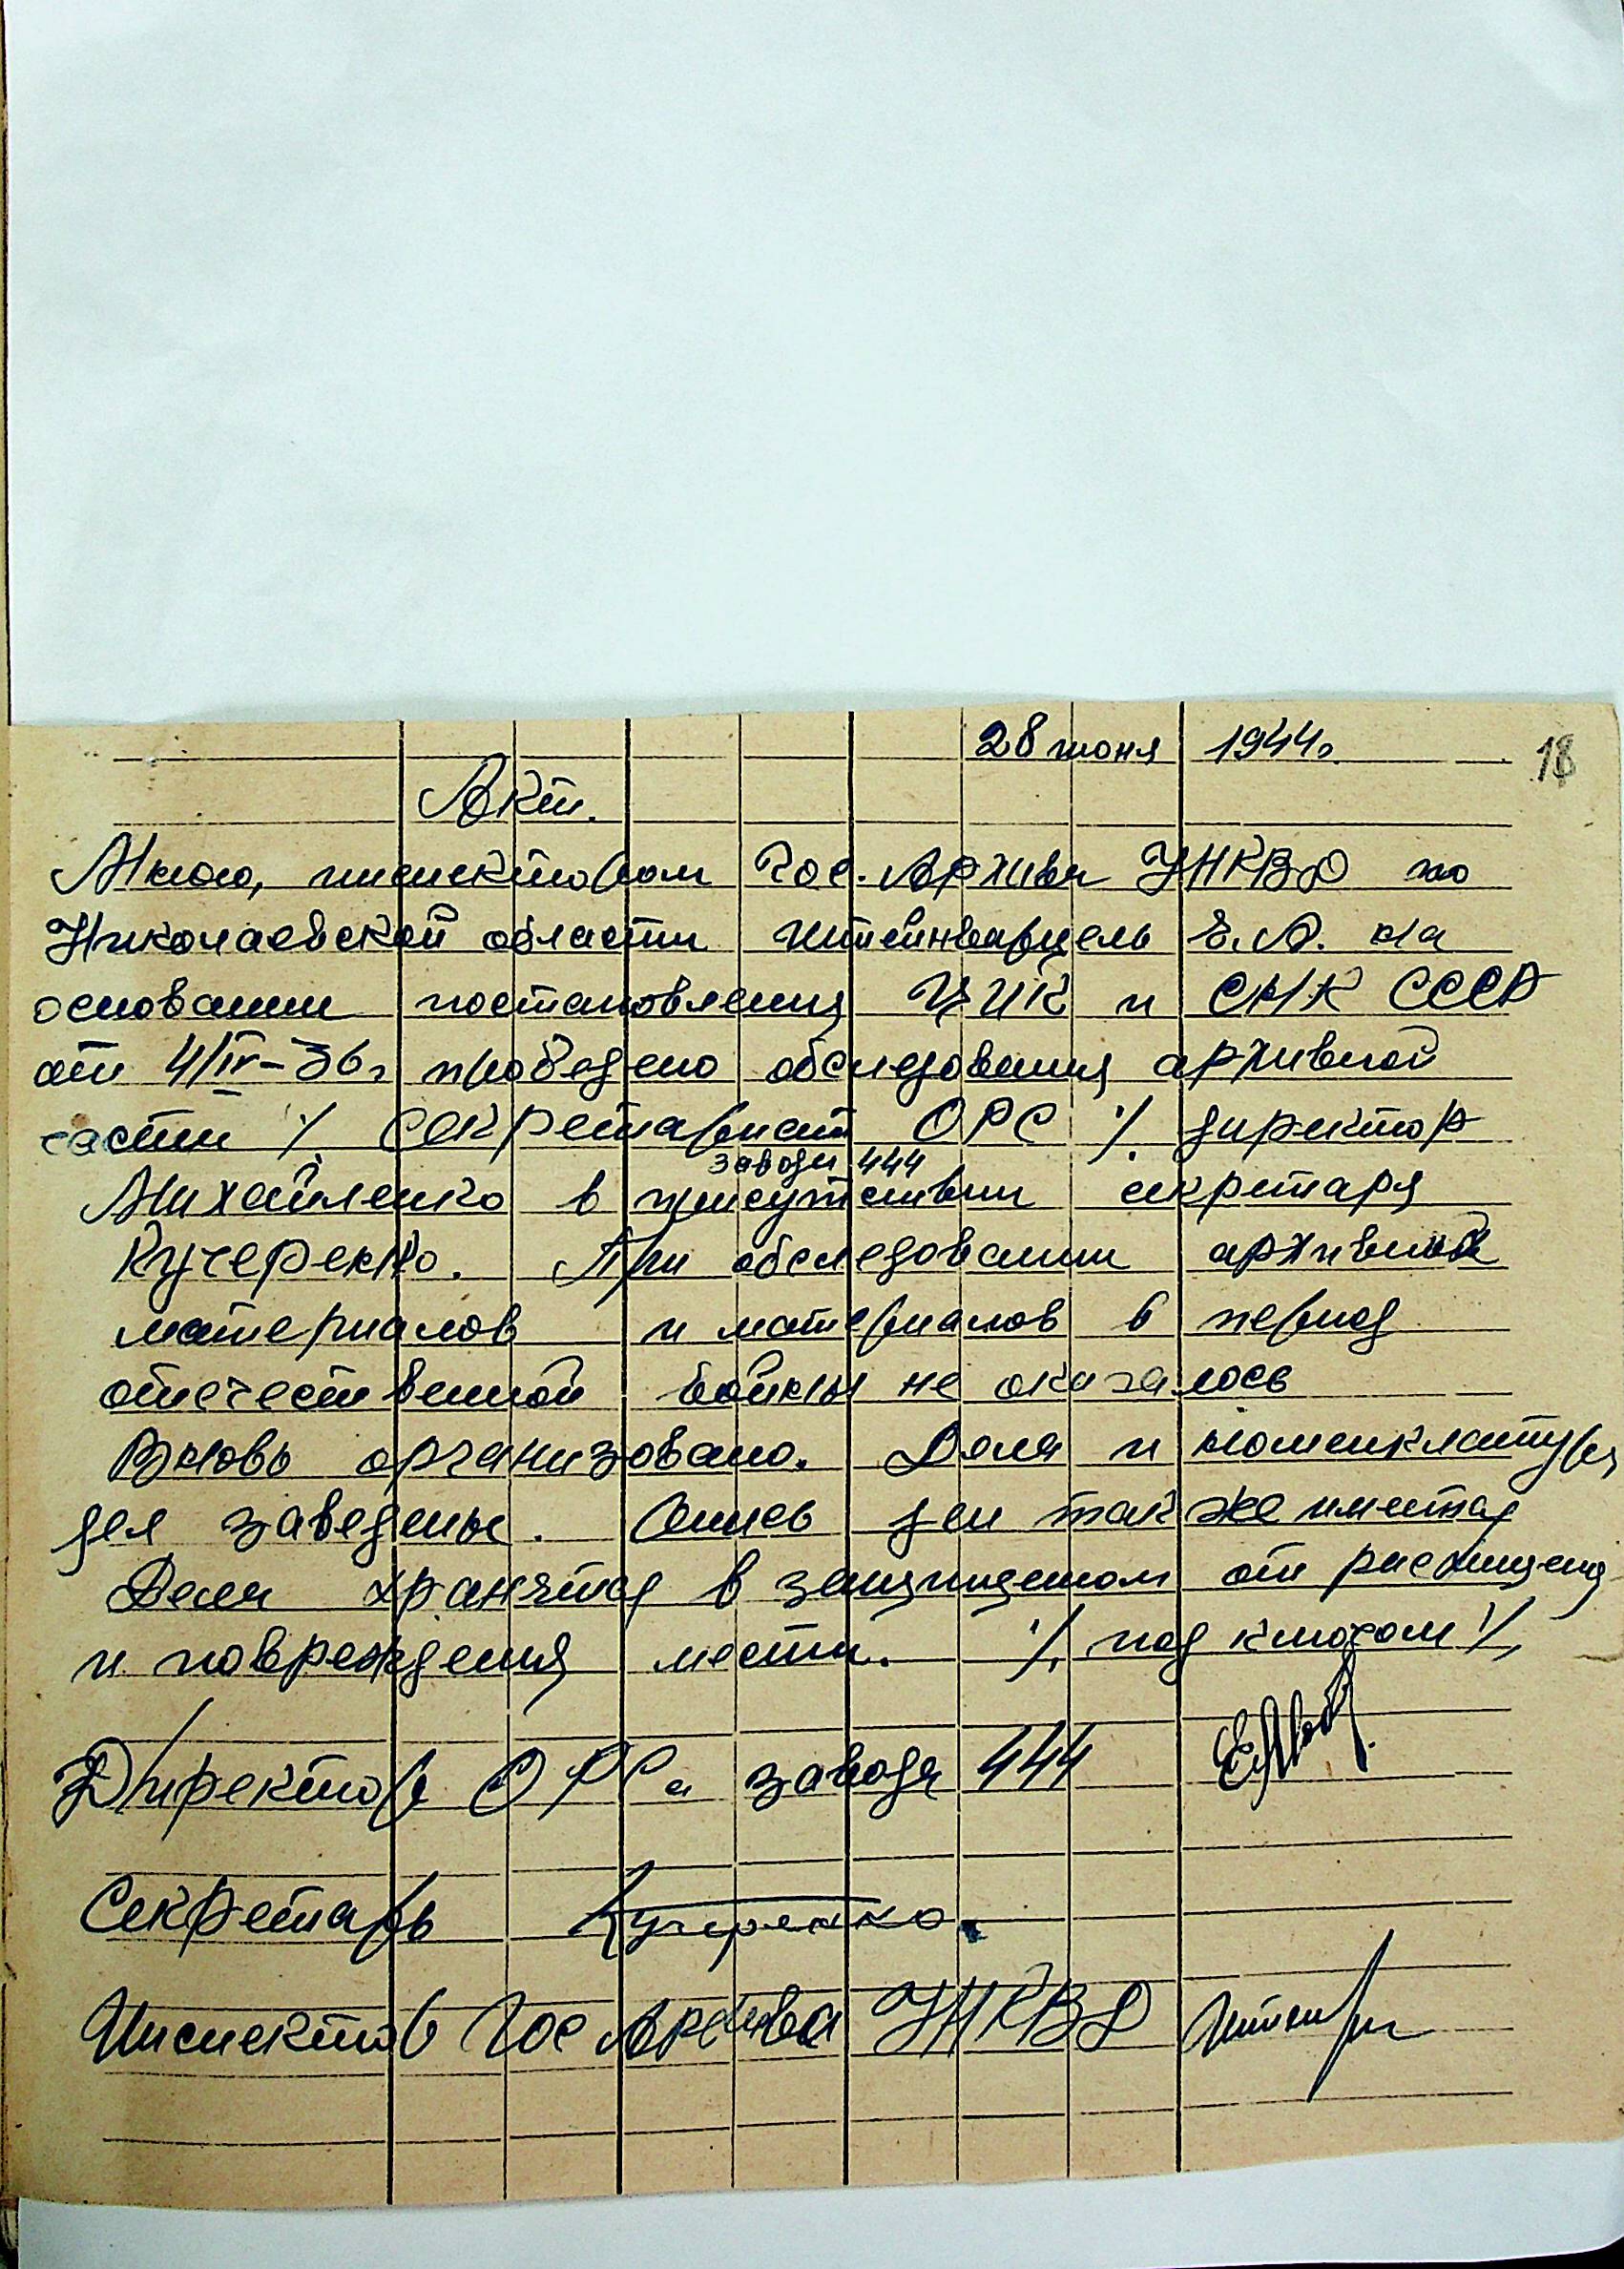 28 июня 1944г.
18
Акт.
Мною, инспектором Гос. Архива УНКВД по
Николаевской области Штейнварцель Е.А. на
основании постановления ЦИК и СНК СССР
от 4/IV-36г проведено обследования архивной
части ./. Секретариат ОРС ./. директор
завода 444
Михайленко в присутствии секретаря
Кучеренко. При обследовании архивных
материалов и материалов в период
отечественной войны не оказалось
Вновь организовано. Дела и номенклатура
дел заведены. Опись дел так же имеется
Дела хранятся в защищенном от расхищения
и повреждения месте. ./. под ключом ./.
Директор ОРСа завода 444
Секретарь Кучеренко.
Инспектор Гос Архива УНКВД